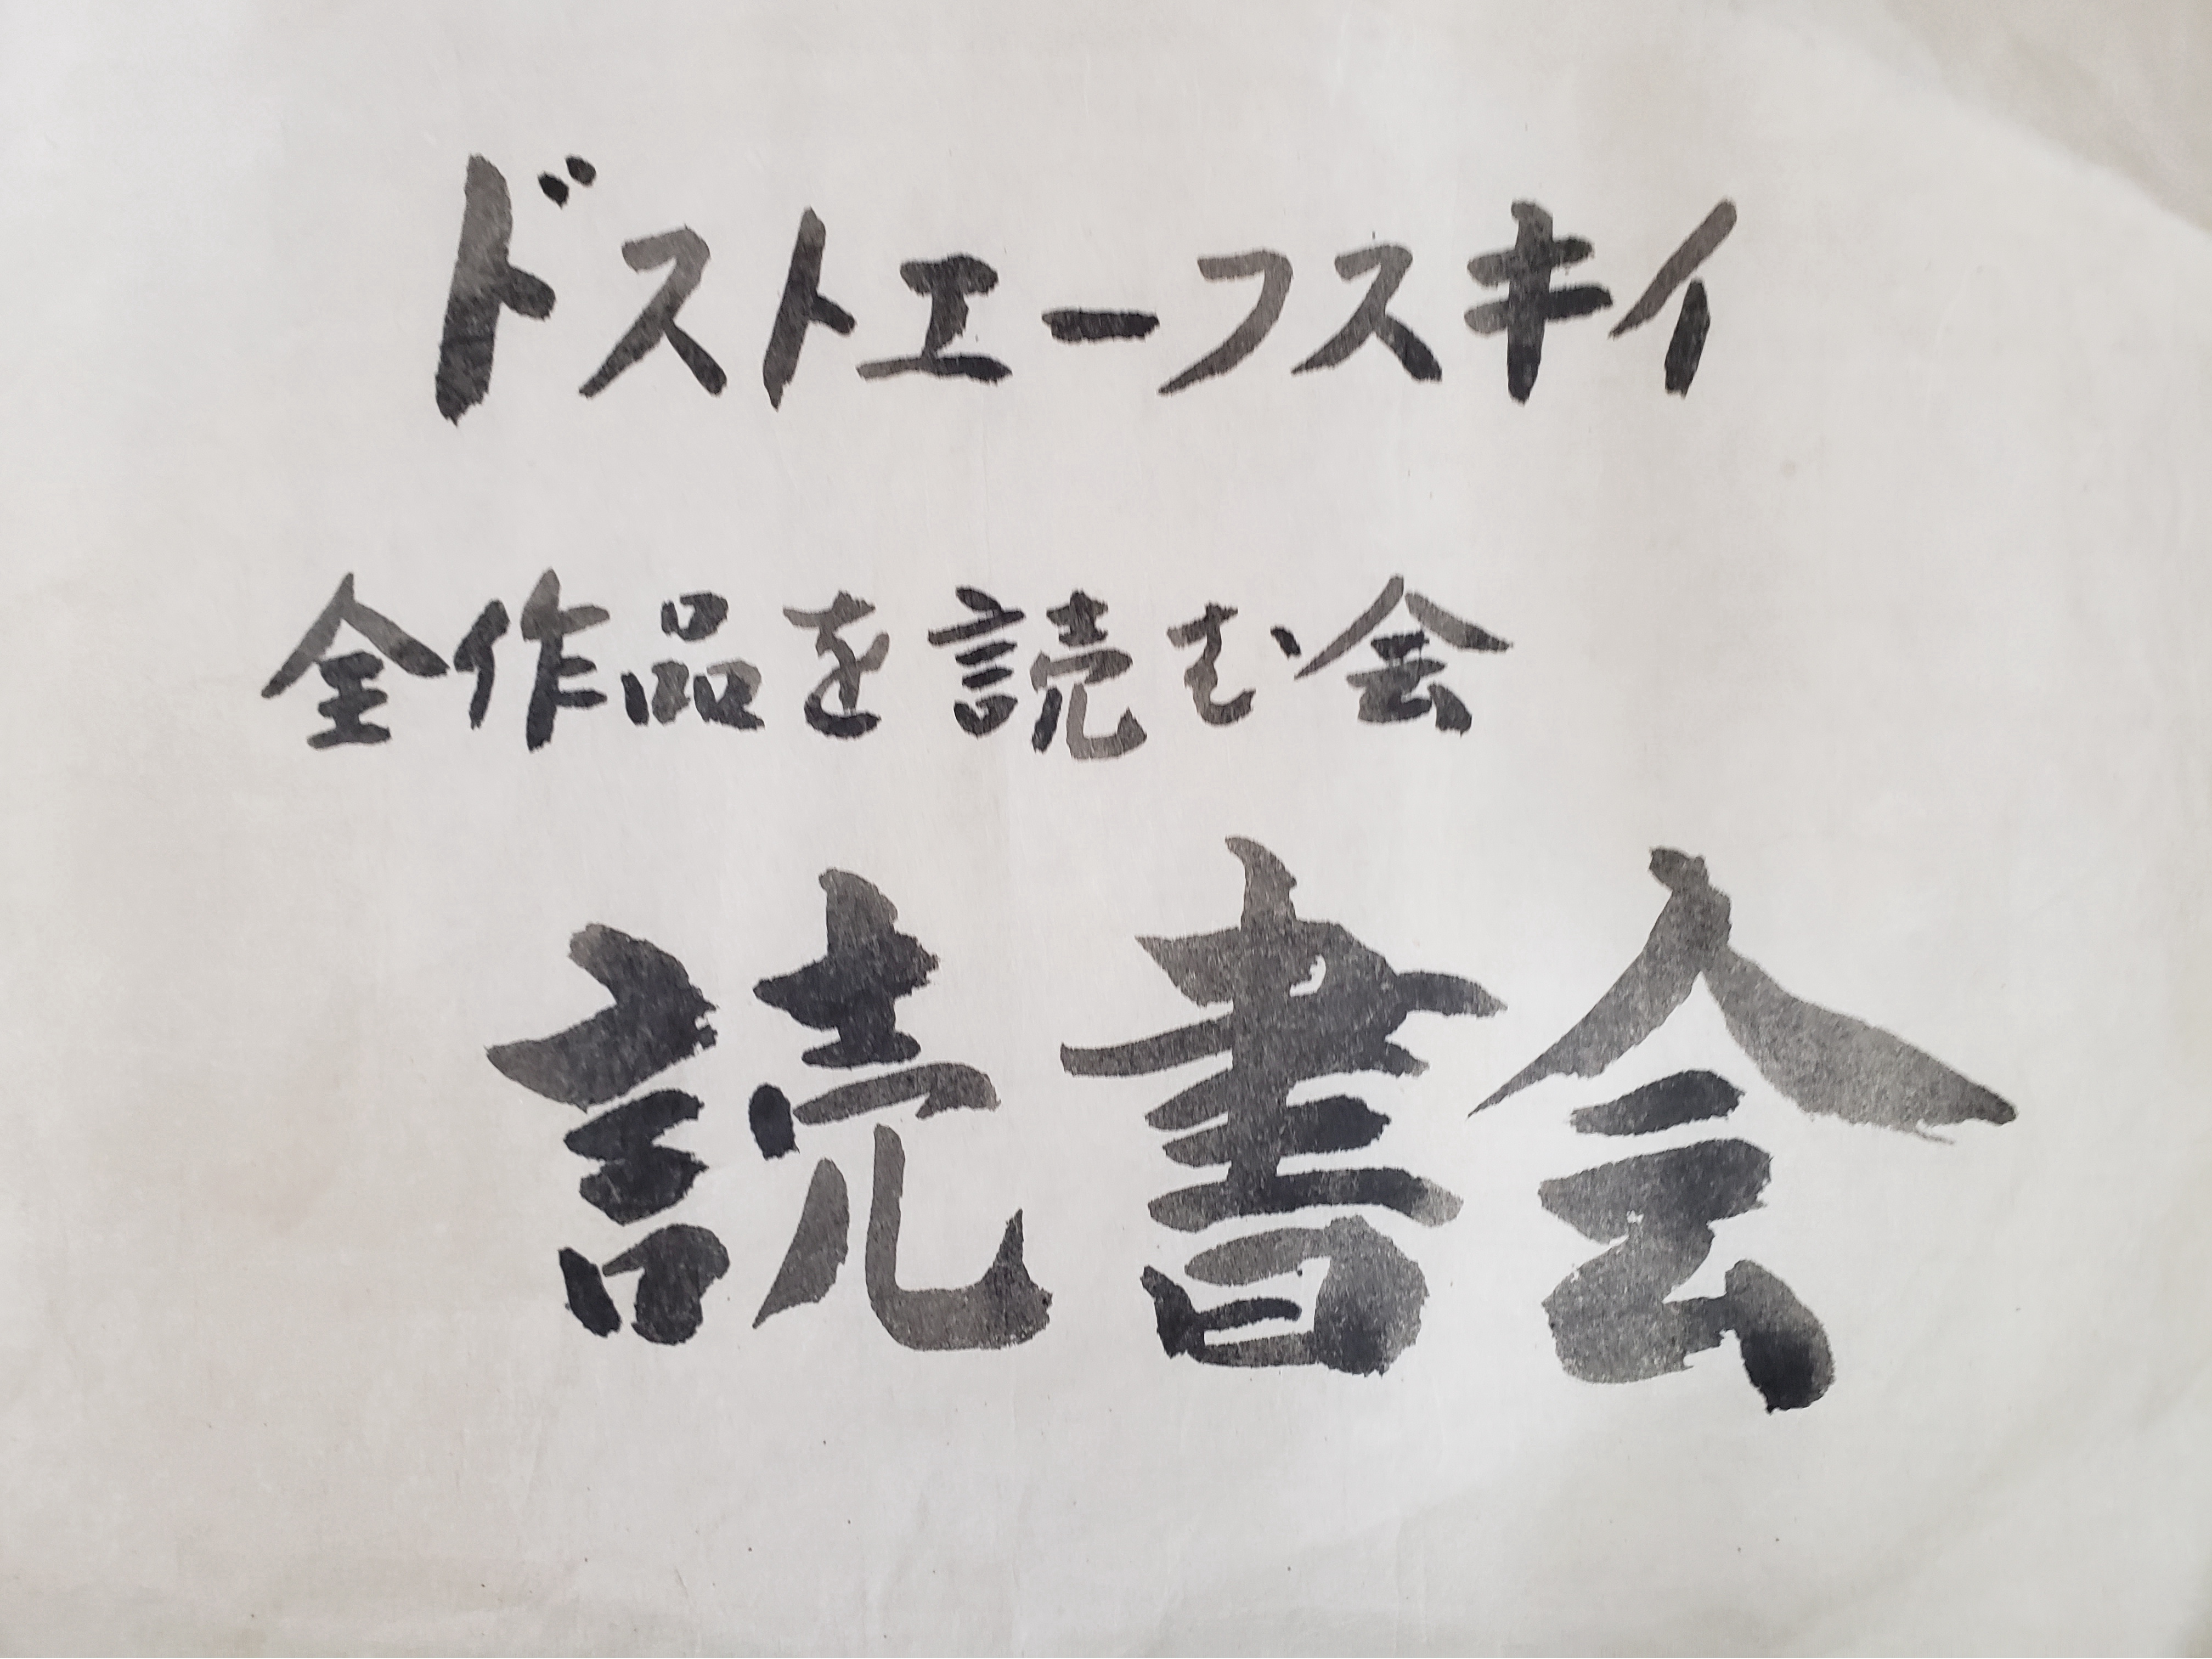 ドストエーフスキイ
全作品を読む会
読書会